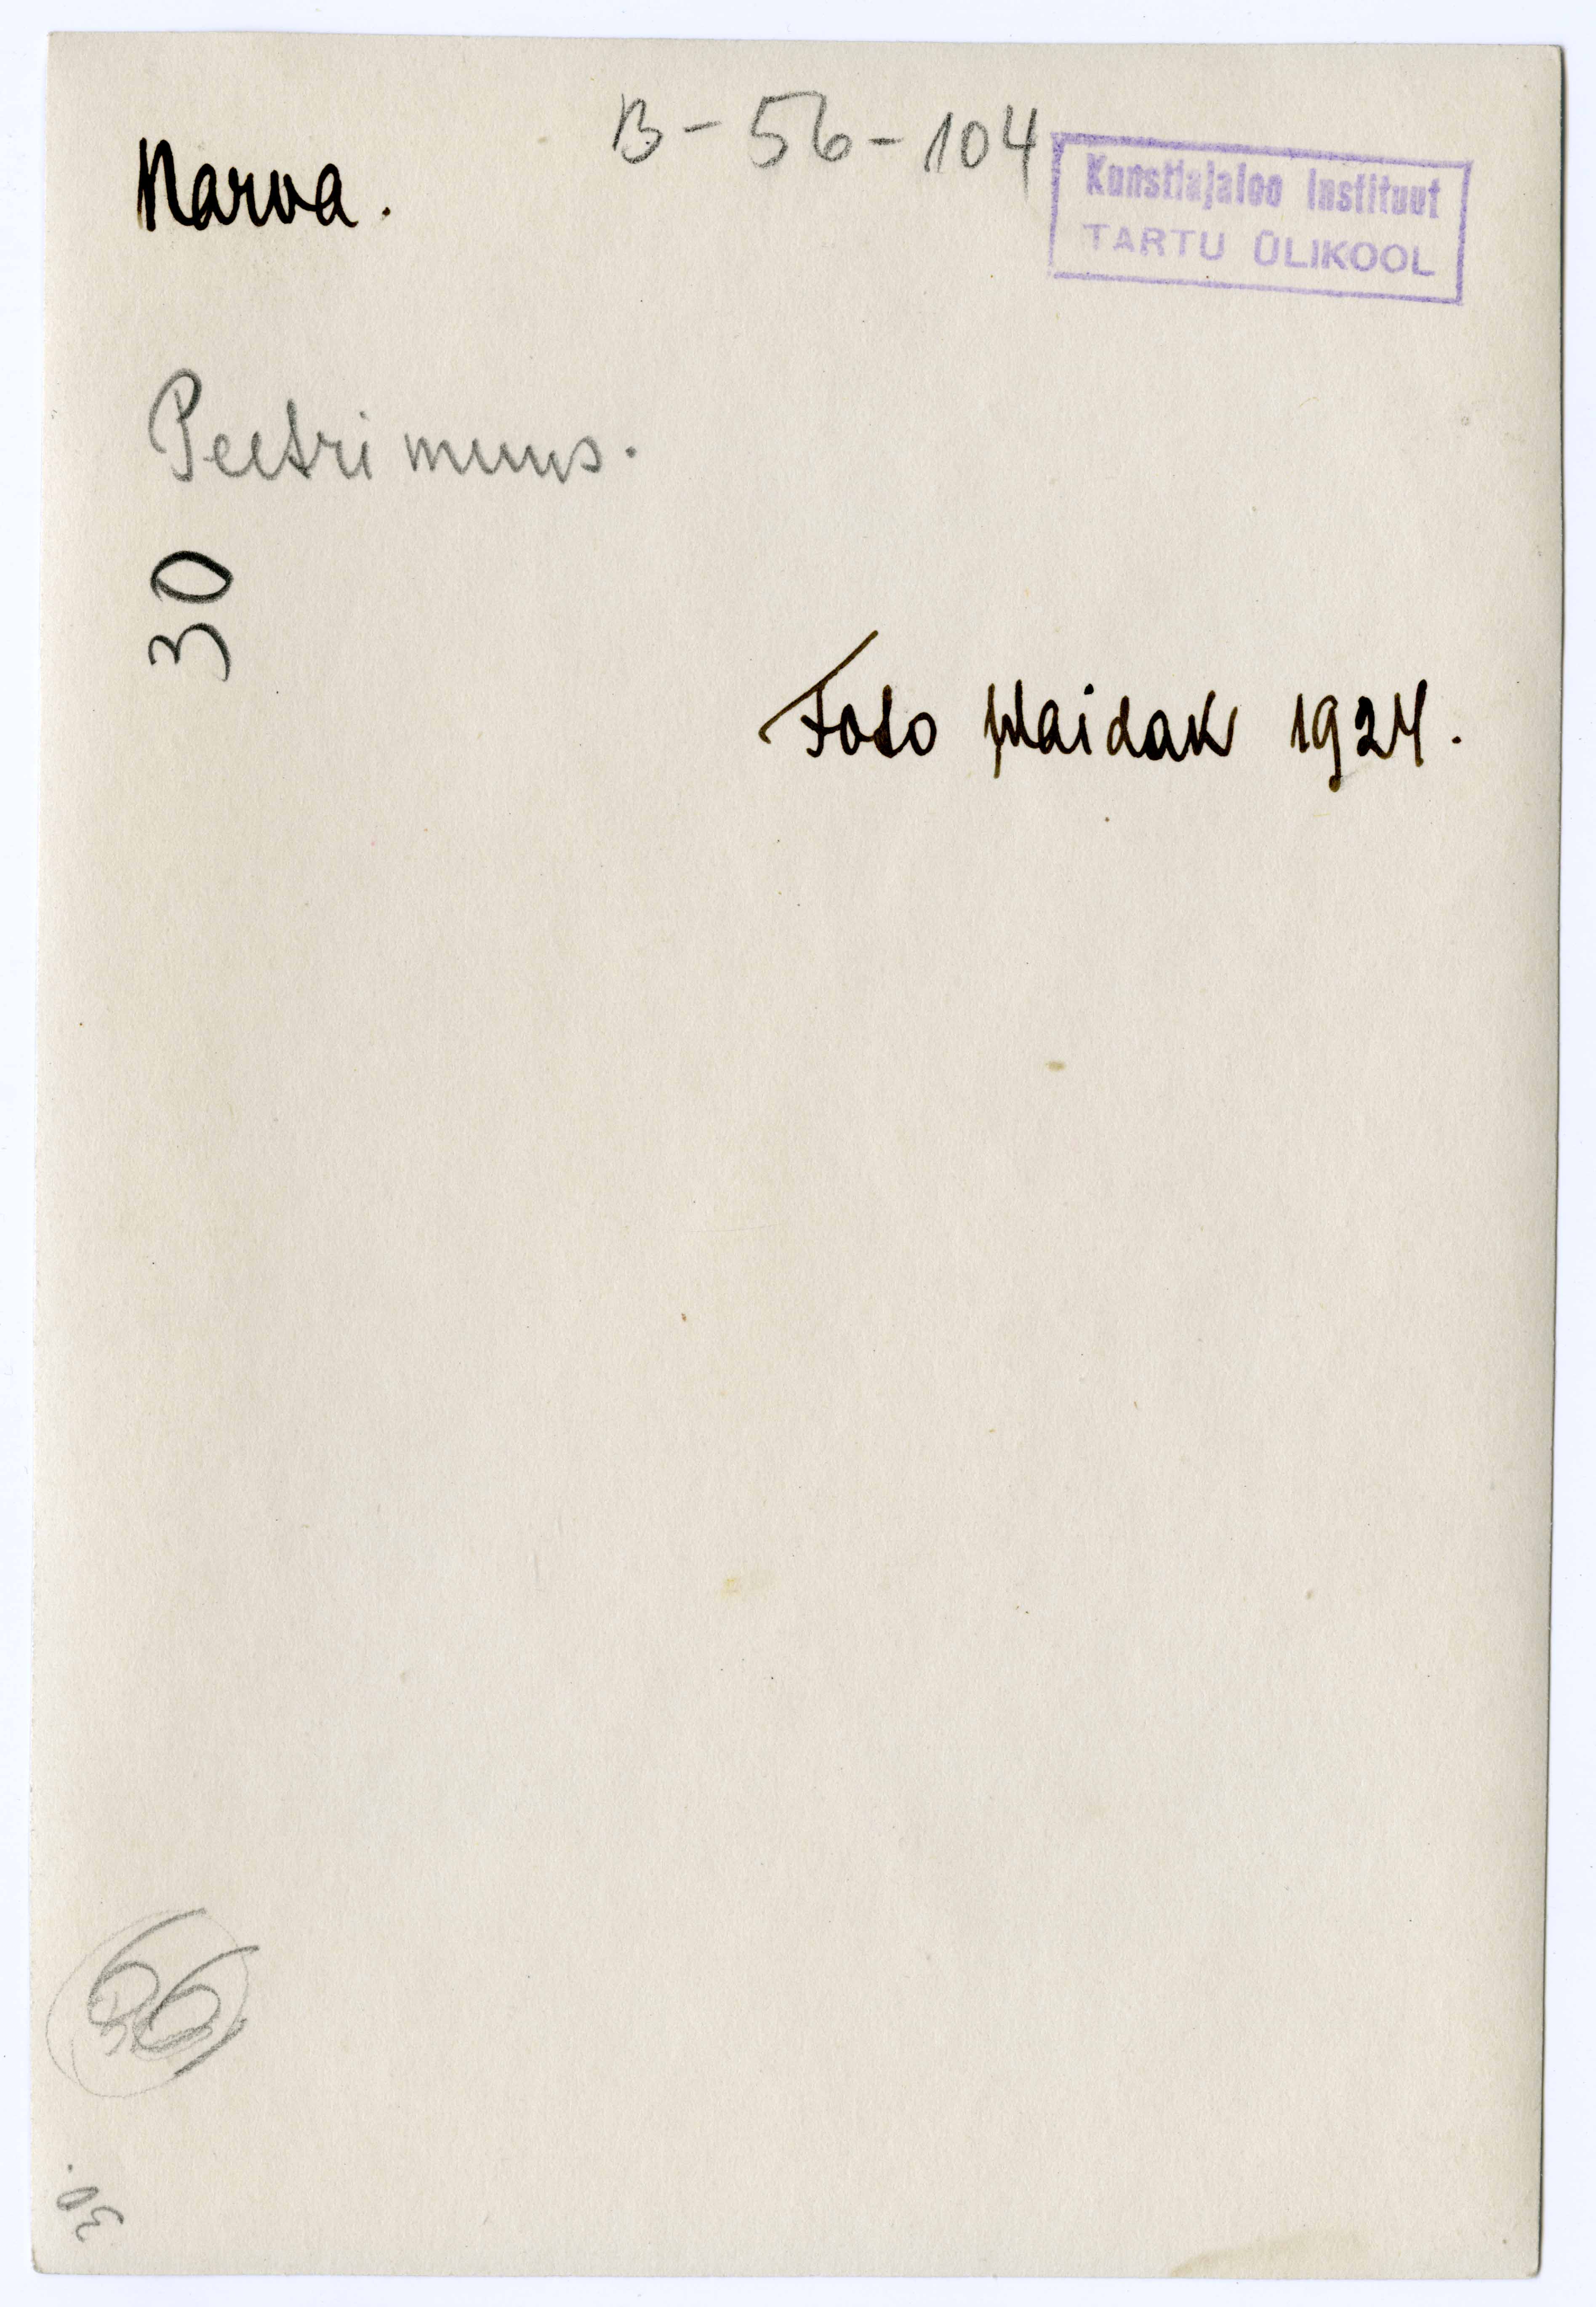 B-56-104
Narva.
Kunstiajaloo Instituut
TARTU ÜLIKOOL
Peetri muus.
30
Foto Maidak 1924.
66
30.